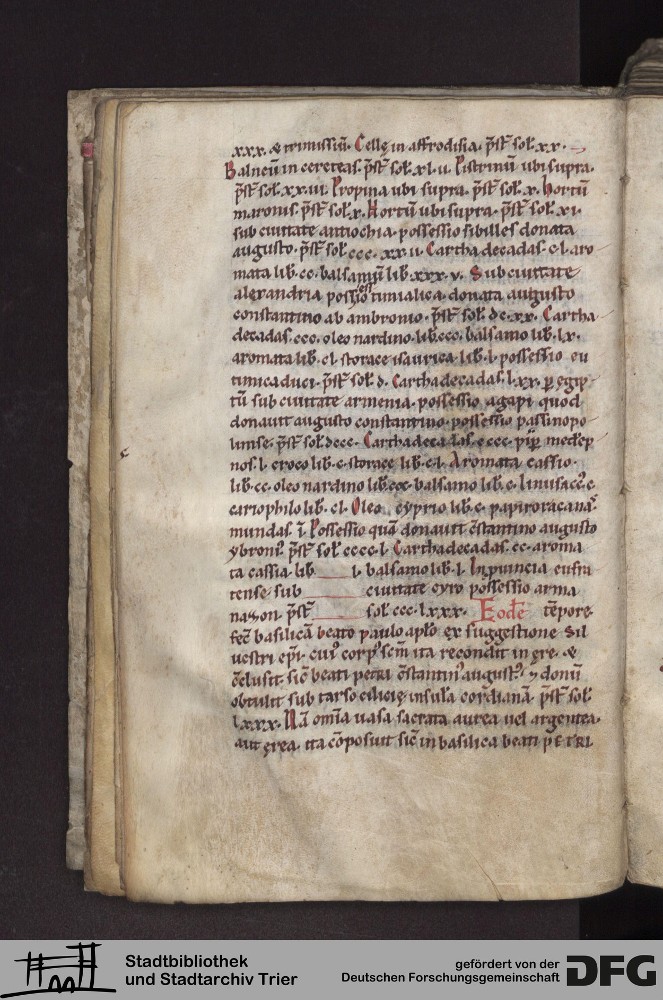 xxx. & trimissiū. Cellę in affrodisia. p̄st sol. xx.
Balneū in cereteas. p̄st sol. xl. ii. Pistrinū ubi supra.
p̄st sol. xx. iii. Propina ubi supra. p̄st sol. x. hortū
maronis. p̄st sol. x. Hortū ubi supra. p̄st sol. xi.
sub ciuitate antiochia. possessio sibilles donata
augusto. p̄st sol. ccc. xx. ii. Cartha decadas. c. l. aro
mata lib. cc. balsamū lib. xxx. v. Sub ciuitate
alexandria possessio timialica. donata augusto
constantino ab ambronio. p̄st sol. dc. xx. Cartha
decadas. ccc. oleo nardino. lib. ccc. balsamo lib. lx.
aromata lib. cl. storace isaurica lib. l. possessio eu
timica duci. p̄st sol. d. carthadecadas. lxx. p egip
tū sub ciuitate armenia. possessio agapi quod
donauit augusto constantino. possessio passinopo
limse. p̄st sol. dccc. Carthadecadas. cccc. pip medęp
nos. l. croco lib. c. storace lib. c. l. Aromata cassio.
lib. cc. oleo nardino lib. ccc. balsamo lib. c. linu sacc. c.
cariophilo lib. cl. Oleo cyprio lib. c. papiro racanas
mundas. ī. Possessio quā donauit c̄stantino augusto
ybronis. p̄st sol. cccc. l. Carthadecadas. cc. aroma
ta cassia. lib. l. balsamo lib. l. In puincia eufra
tense sub ciuitate cyro possessio arma
nason. p̄st sol. ccc. lxxx. Eodē tēpore
fec̄ basilicā beato paulo aplo ex suggestione sil
uestri epi. cui corp' scm̄ ita recondit in ęre. &
c̄clusit. sic̄ beati petri c̄stantin' august'. 7 donū
obtulit sub tarso cilicię insula cordianā. p̄st sol.
lxxx. Nā omīa uasa sacrata aurea uel argentea.
aut ęrea. ita cōposuit sic̄ in basilica beati PETRI
Stadtbibliothek
und Stadtarchiv Trier
gefördert von der
Deutschen Forschungsgemeinschaft
DFG